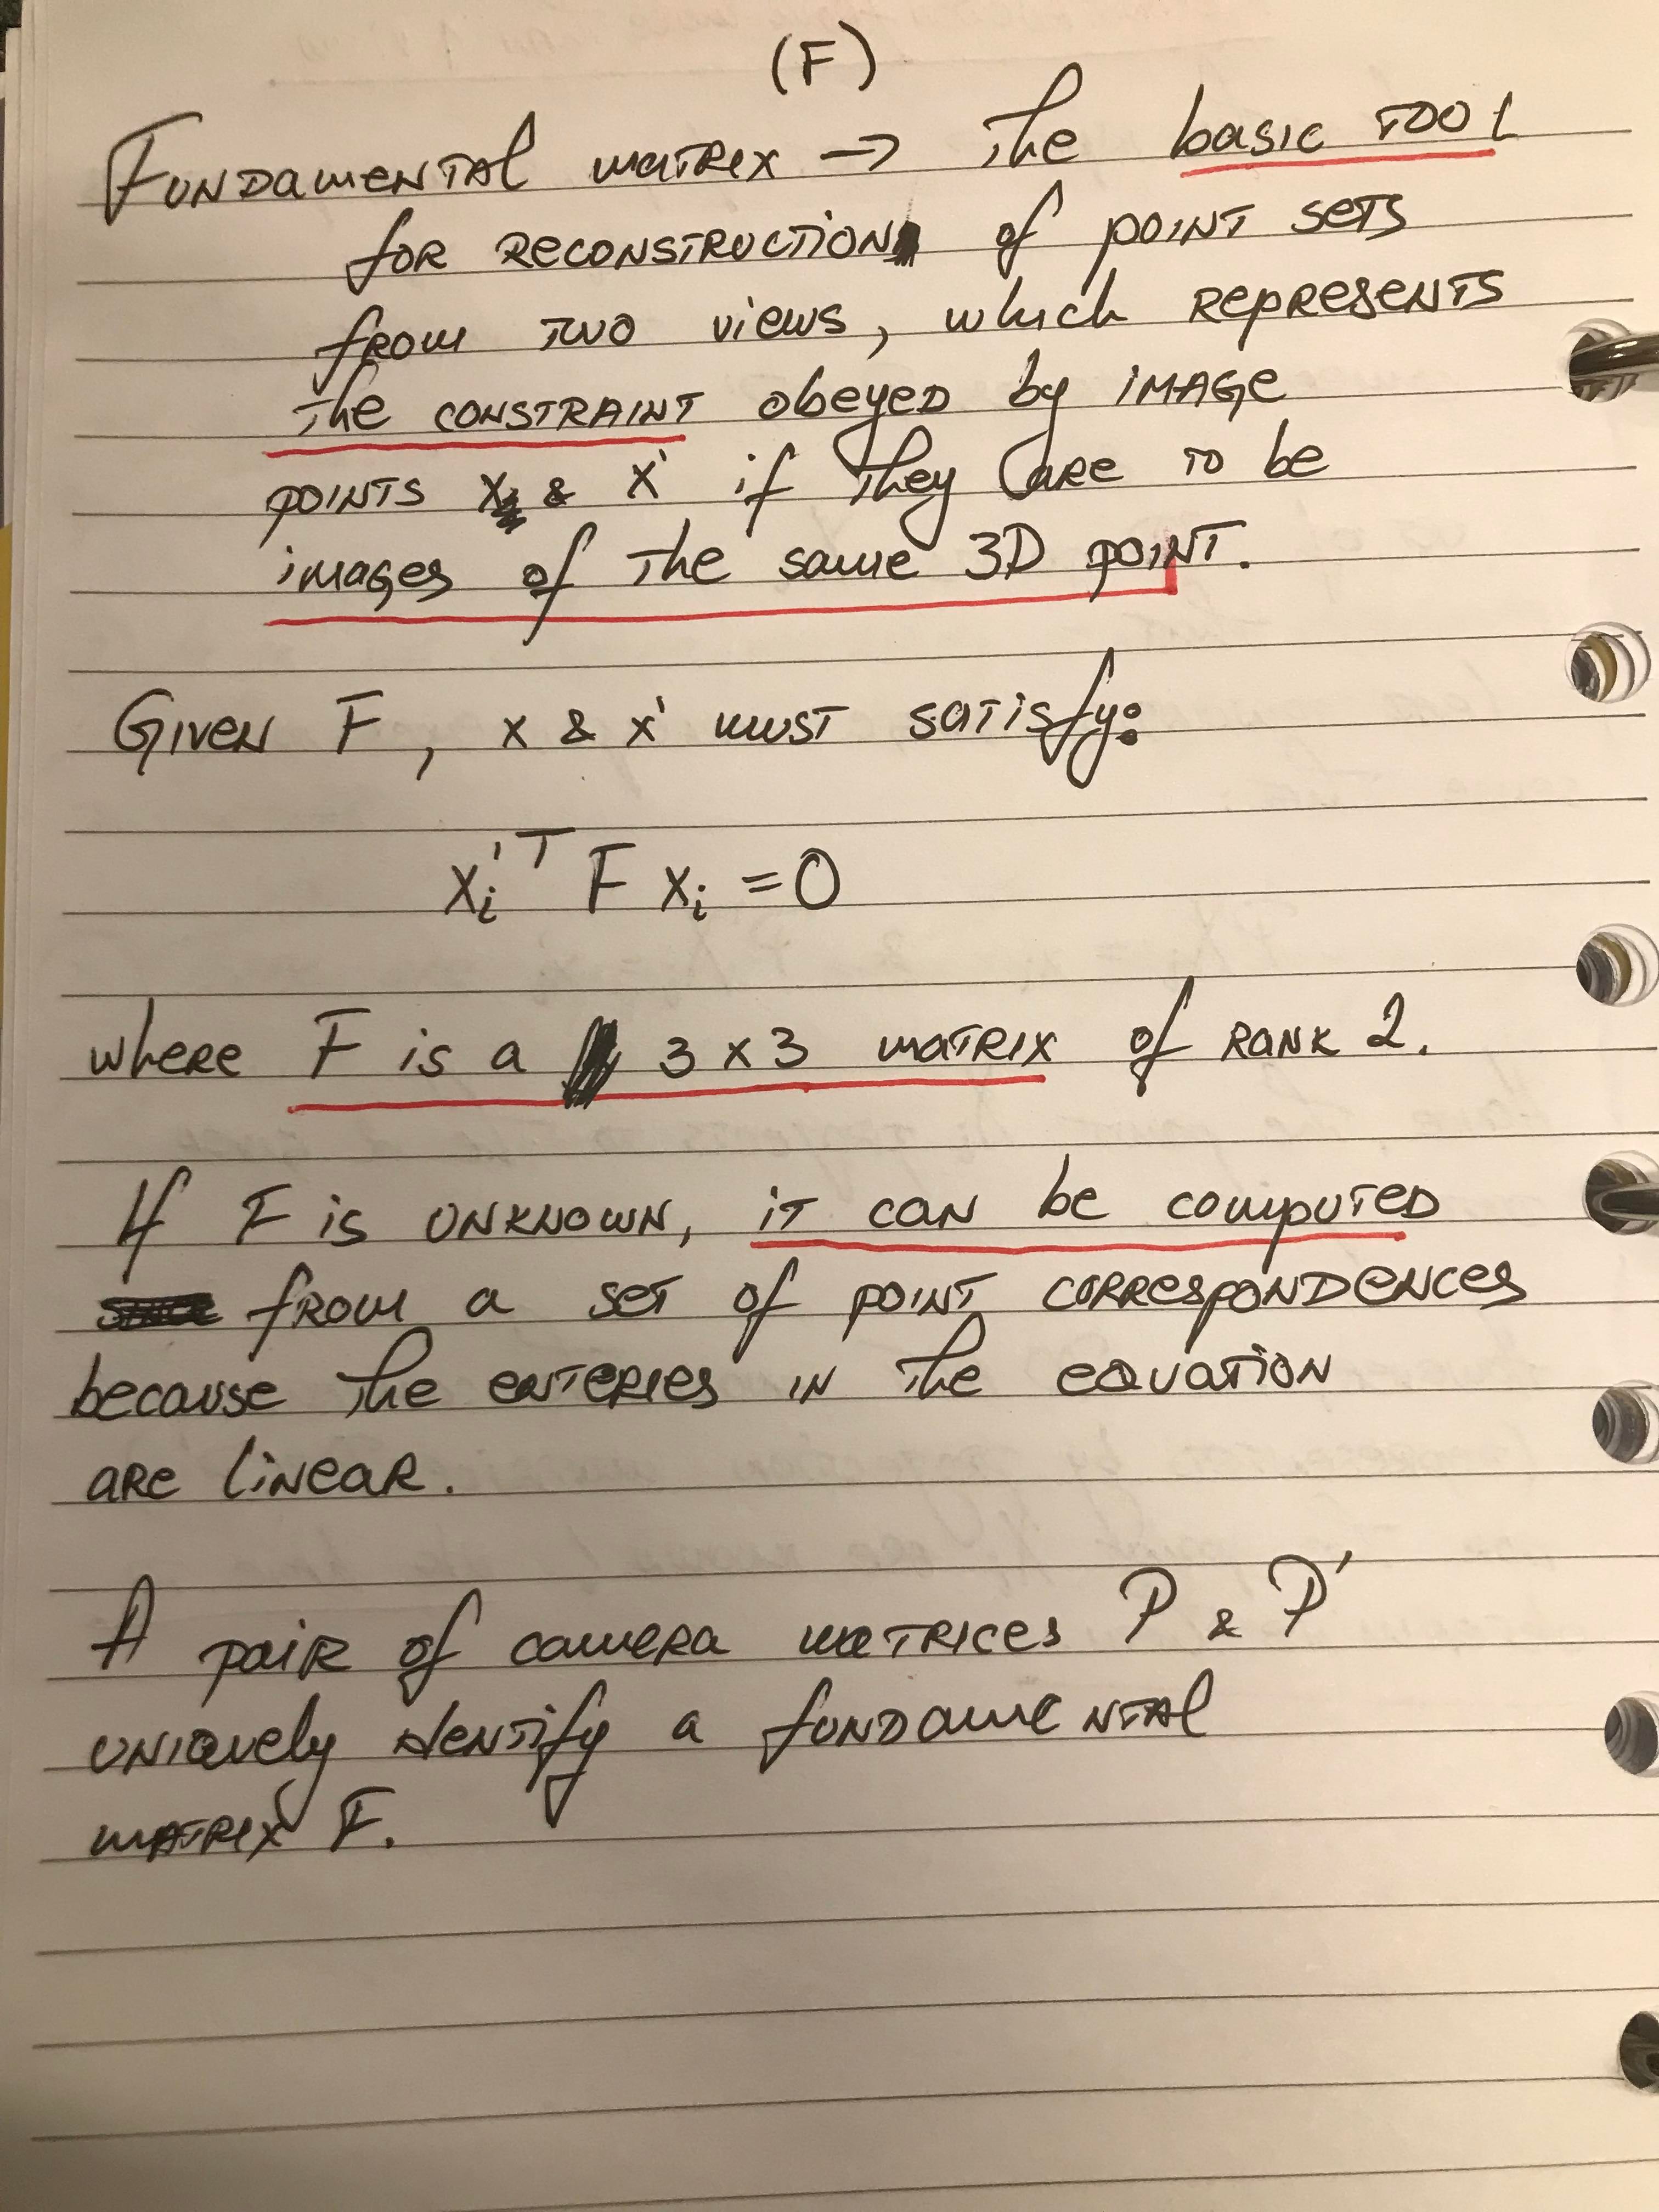 (F)
Fundamental matrix → The basic tool
for reconstruction of point sets
from two views, which represents
the constraint obeyed by image
points x & x' if they are to be
images of the same 3D point.
Given F, x & x' must satisfy:
xᵢ'ᵀ F xᵢ = 0
where F is a 3 x 3 matrix of rank 2.
If F is unknown, it can be computed
from a set of point correspondences
because the enteries in the equation
are linear.
A pair of camera matrices P & P'
uniquely identify a fundamental
matrix F.